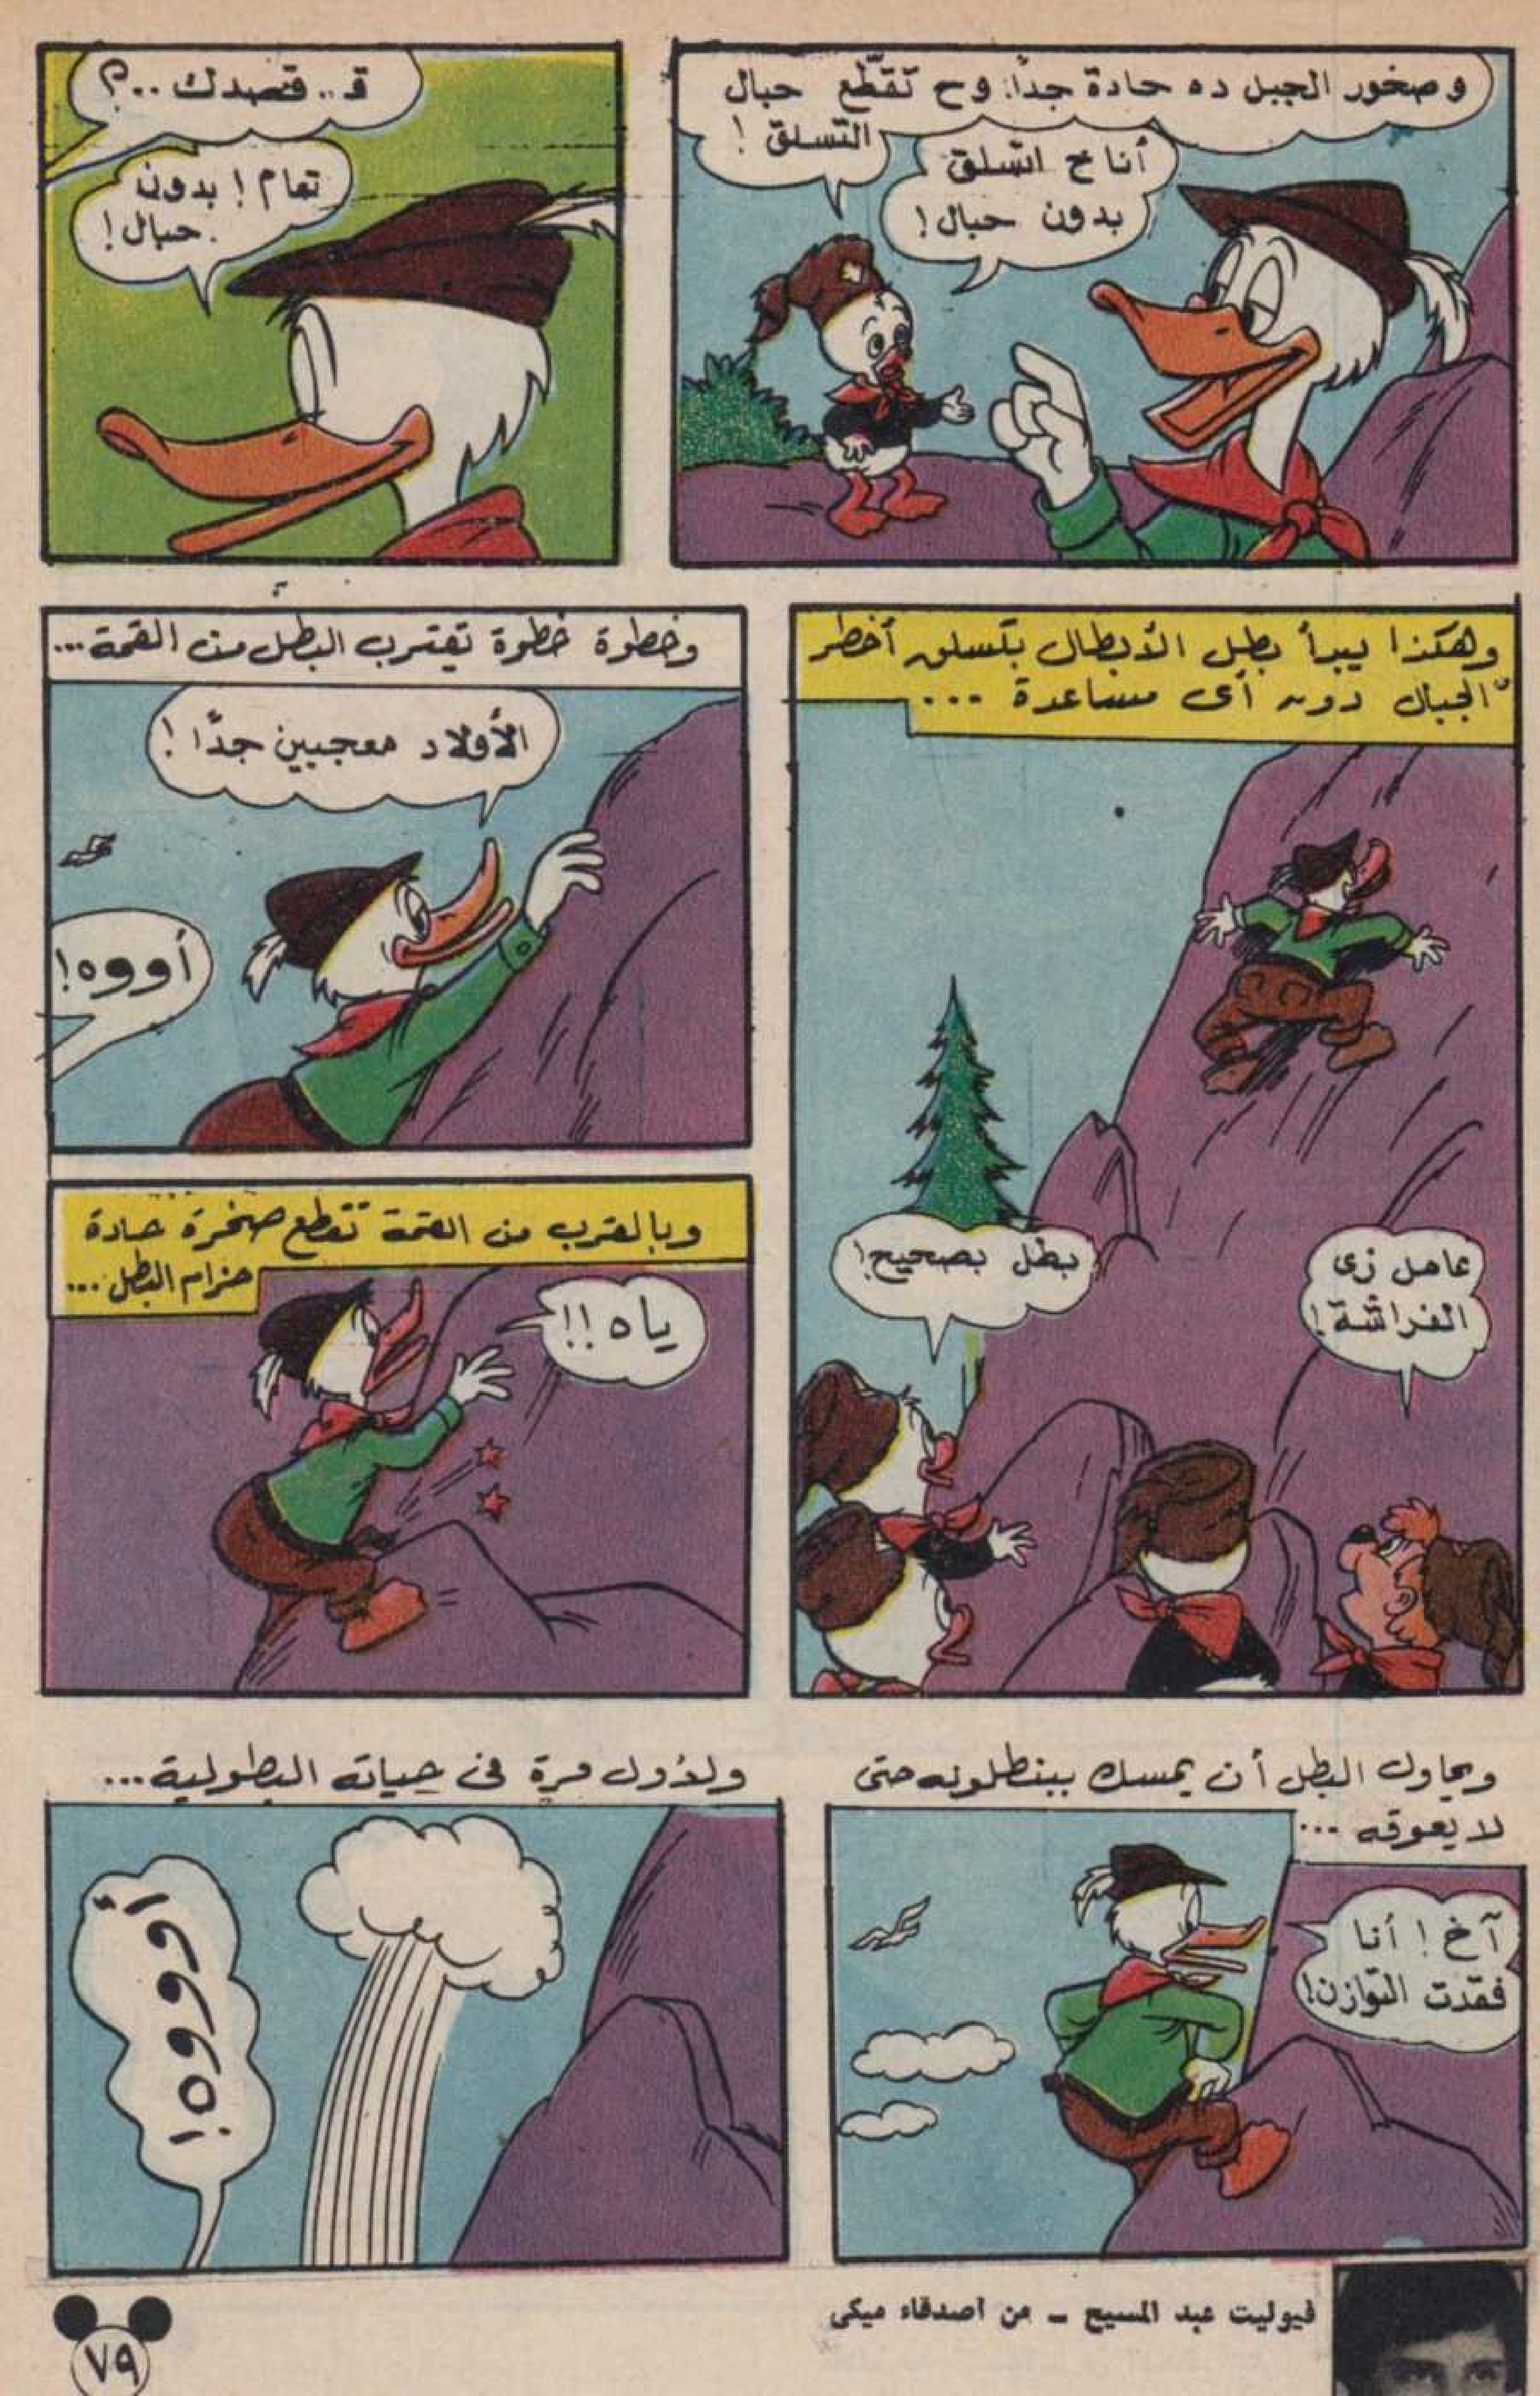 وصخور الجبل ده حادة جداً. وح تقطّع حبال
التسلق !
أنا ح اتسلق
بدون حبال !
قـ .. قصدك ..؟
تمام ! بدون
حبال !
وهكذا يبدأ بطل الأبطال بتسلق أخطر
الجبال دون أى مساعدة ...
بطل بصحيح !
عامل زى
الفراشة !
وخطوة خطوة تقترب البطل من القمة ...
الأولاد معجبين جدًا !
أووه !
وبالقرب من القمة تقطع صخرة حادة
حزام البطل ...
ياه !!
ويحاول البطل أن يمسك ببنطلونه حتى
لا يعوقه ...
آخ ! أنا
فقدت التوازن !
ولأول مرة فى حياته البطولية ...
أوووه !
فيوليت عبد المسيح ــ من أصدقاء ميكى
٧٩